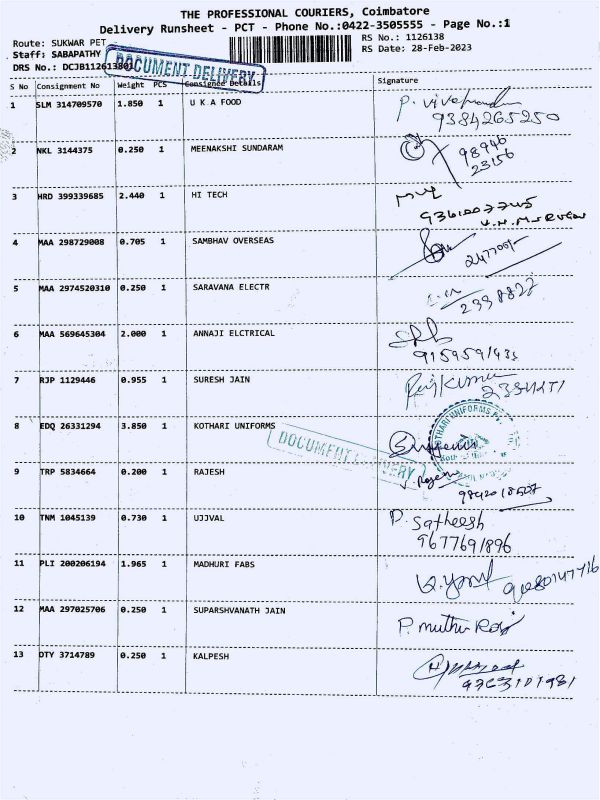 THE PROFESSIONAL COURIERS, Coimbatore
Delivery Runsheet - PCT - Phone No.:0422-3505555 - Page No.:1
Route: SUKWAR PET
RS No.: 1126138
Staff: SABAPATHY
RS Date: 28-Feb-2023
DRS No.: DCJB112613801
DOCUMENT DELIVERY
S No Consignment No Weight PCS Consignee Details Signature
1 SLM 314709570 1.850 1 U K A FOOD
9384265250
2 NKL 3144375 0.250 1 MEENAKSHI SUNDARAM 98946
23156
3 HRD 399339685 2.440 1 HI TECH
4 MAA 298729008 0.705 1 SAMBHAV OVERSEAS
5 MAA 2974520310 0.250 1 SARAVANA ELECTR
6 MAA 569645304 2.000 1 ANNAJI ELCTRICAL
7 RJP 1129446 0.955 1 SURESH JAIN Rajkumar
8 EDQ 26331294 3.850 1 KOTHARI UNIFORMS
DOCUMENT DELIVERY
9 TRP 5834664 0.200 1 RAJESH
10 TNM 1045139 0.730 1 UJJVAL P. Satheesh
9677691896
11 PLI 200206194 1.965 1 MADHURI FABS
12 MAA 297025706 0.250 1 SUPARSHVANATH JAIN P. muthu Raj
13 DTY 3714789 0.250 1 KALPESH